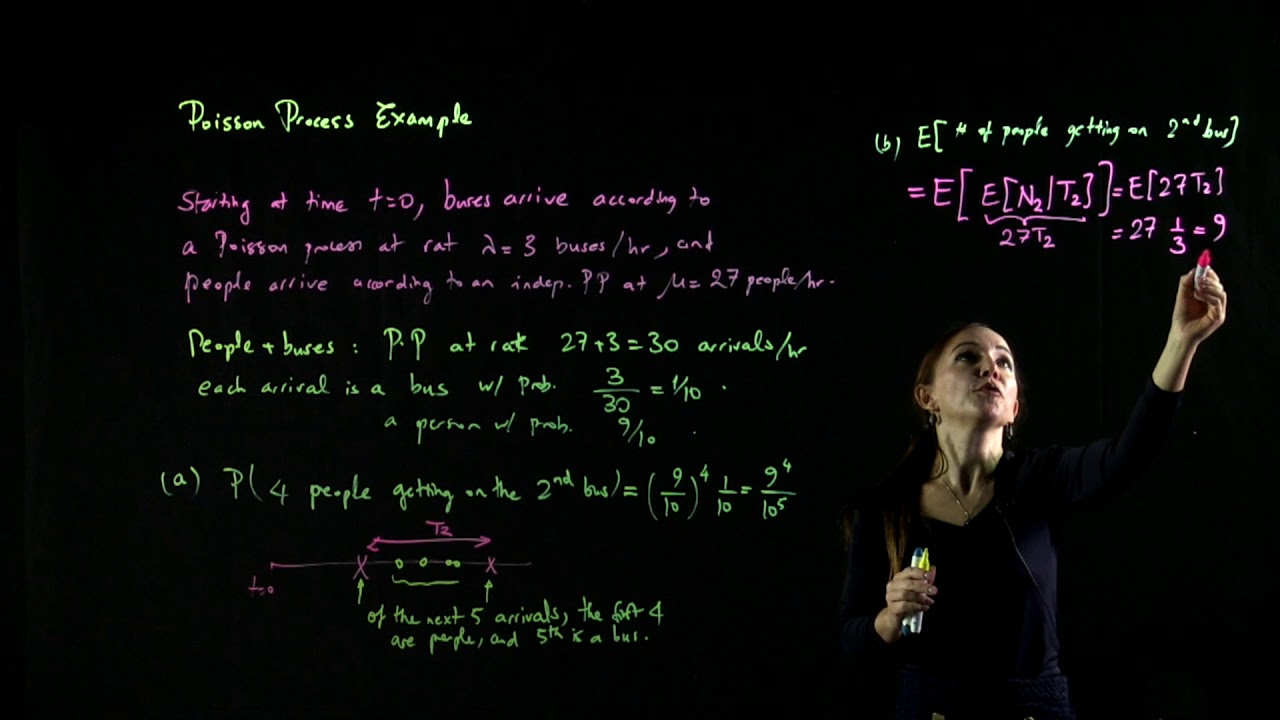 Poisson Process Example
Starting at time t=0, buses arrive according to
a Poisson process at rat λ = 3 buses/hr, and
people arrive according to an indep. PP at μ = 27 people/hr.
People + buses : P.P at rate 27+3 = 30 arrivals/hr
each arrival is a bus w/ prob. 3/30 = 1/10 .
a person w/ prob. 9/10 .
(a) P( 4 people getting on the 2nd bus) = (9/10)^4 1/10 = 9^4/10^5
T2
t=0
of the next 5 arrivals, the first 4
are people, and 5th is a bus.
(b) E[ # of people getting on 2nd bus]
= E[ E[N2|T2] ] = E[27T2]
27T2
= 27 1/3 = 9